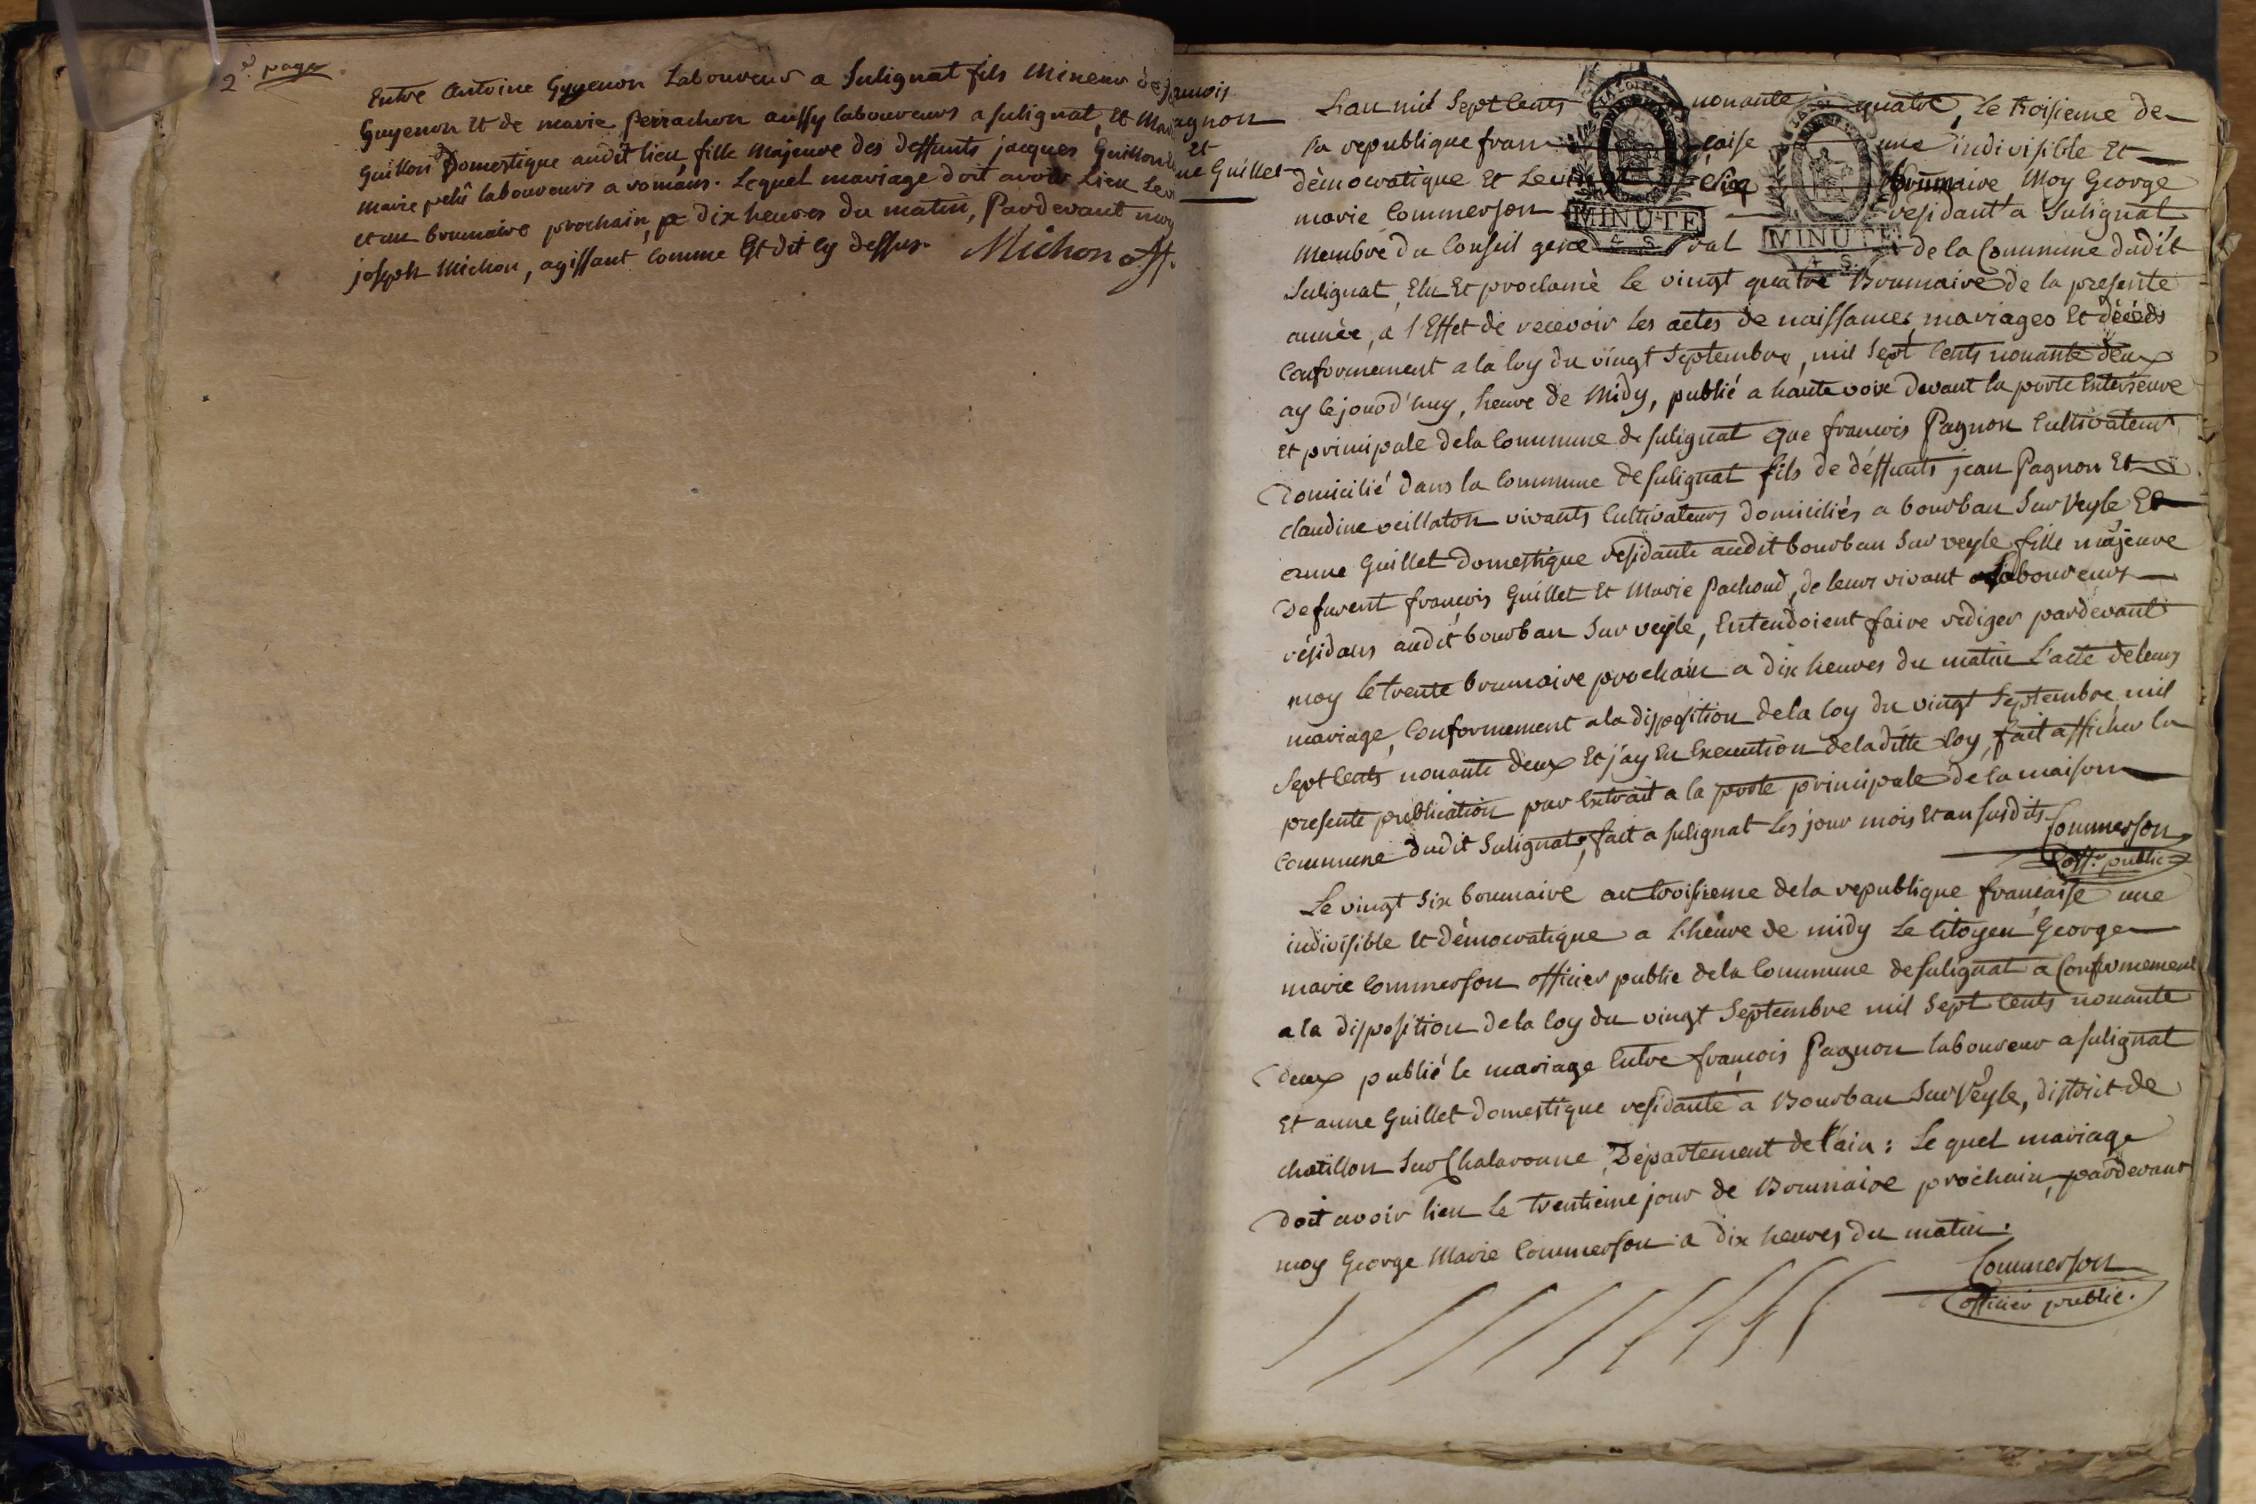 2e. page
Entre Antoine Guyenon Laboureur a Sulignat fils Mineur de
Guyenon Et de marie perrachon aussy laboureurs a sulignat, Et
Guillon Domestique audit lieu fille Majeure des deffunts jacques Guillon
marie petit laboureurs a romans. Lequel mariage doit avoir Lieu Le
et un brumaire prochain, a dix heures du matin, Pardevant moy
joseph Michon, agissant Comme Est dit cy dessus. Michon off.
francois
Pagnon
et
Guillet
L'an mil Sept Cents nonante quatre, Le troisieme de
la republique francaise une indivisible Et
dèmocratique Et Le six brumaire Moy George
marie Commerson residant a Sulignat
Membre du Conseil general de la Commune dudit
Sulignat, Elu Et proclamè Le vingt quatre Brumaire de la presente
annèe, a l'Effet de recevoir les actes de naissances, mariages Et décéds
Conformement a la loy du vingt Septembre, mil Sept Cents nonante deux
ay Cejourd'huy, heure de Midy, publié a haute voix devant la porte Exterieure
Et principale de la Commune de sulignat que francois Pagnon Cultivateur
Domicilié dans la Commune de sulignat fils de déffunts jean Pagnon Et
claudine veillaton vivants Cultivateurs domiciliés a bourban Sur Veyle Et
anne Guillet domestique residante audit bourban Sur veyle fille majeure
De furent francois Guillet Et Marie Pachoud, de leurs vivant laboureurs
résidans audit bourban Sur veyle, Entendoient faire rediger pardevant
moy le trente brumaire prochain a dix heures du matin L'acte de leurs
mariage, Conformement a la disposition de la loy du vingt Septembre mil
Sept Cents nonante deux Et j'ay En Execution de laditte loy, fait afficher la
presente publication par Extrait a la porte principale de la maison
Commune dudit Sulignat, fait a sulignat Les jour mois Et an susdits. Commerson
off.er public
Le vingt Six brumaire an troisieme de la republique francaise une
indivisible Et dèmocratique a L'heure de midy Le Citoyen George
marie Commerson officier public de la Commune de sulignat a Conformement
a la disposition de la loy du vingt Septembre mil Sept Cents nonante
deux publié le mariage Entre francois Pagnon laboureur a sulignat
Et anne Guillet domestique residante a Bourban Sur Veyle, district de
chatillon Sur Chalaronne, Département de l'ain : Le quel mariage
Doit avoir lieu Le trentième jour de Brumaire prochain, pardevant
moy George Marie Commerson a dix heures du matin.
Commerson
officier public.
MINUTE
MINUTE